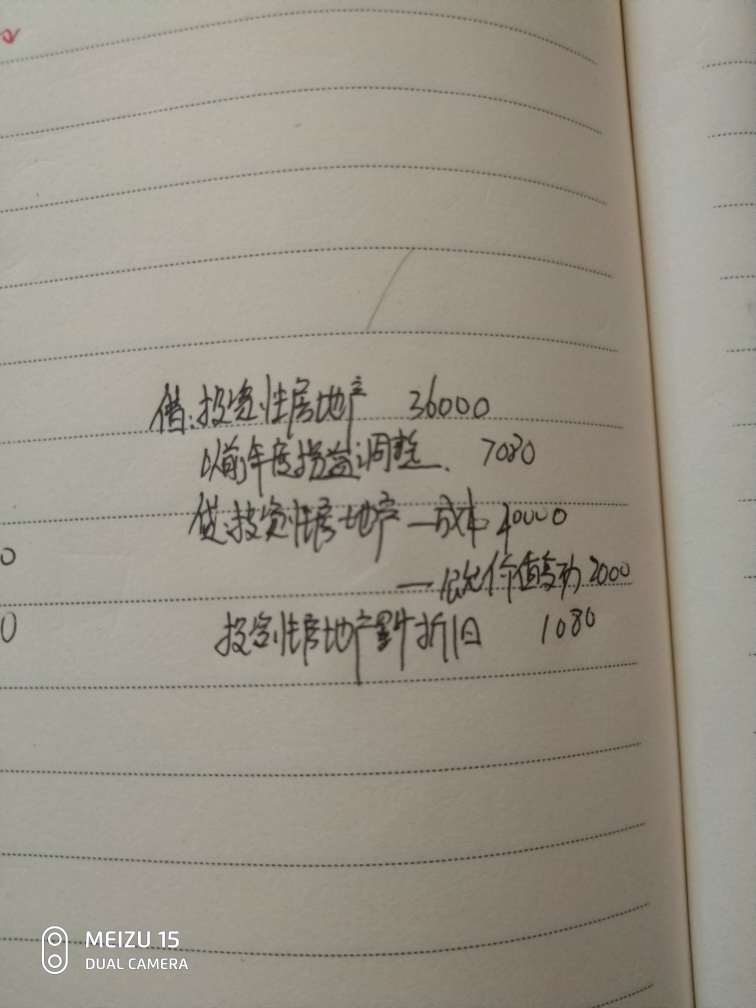 借:投资性房地产 36000
以前年度损益调整 7080
贷:投资性房地产—成本 40000
—公允价值变动 2000
投资性房地产累计折旧 1080
0
0
MEIZU 15
DUAL CAMERA